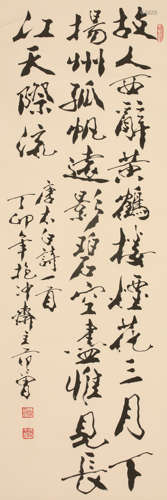 故人西辭黃鶴樓煙花三月下
揚州孤帆遠影碧空盡惟見長
江天際流
唐太白詩一首
丁卯年抱沖齋主范曾